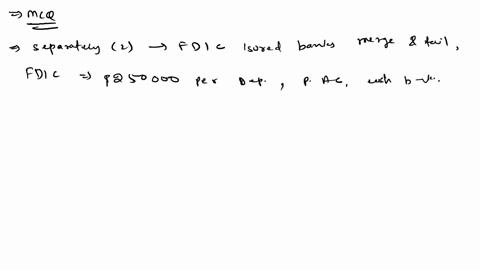 ⇒ MCQ
⇒ separately (2) → FDIC isured banks merge & fail,
FDIC ⇒ $250000 per Dep., P. AC,